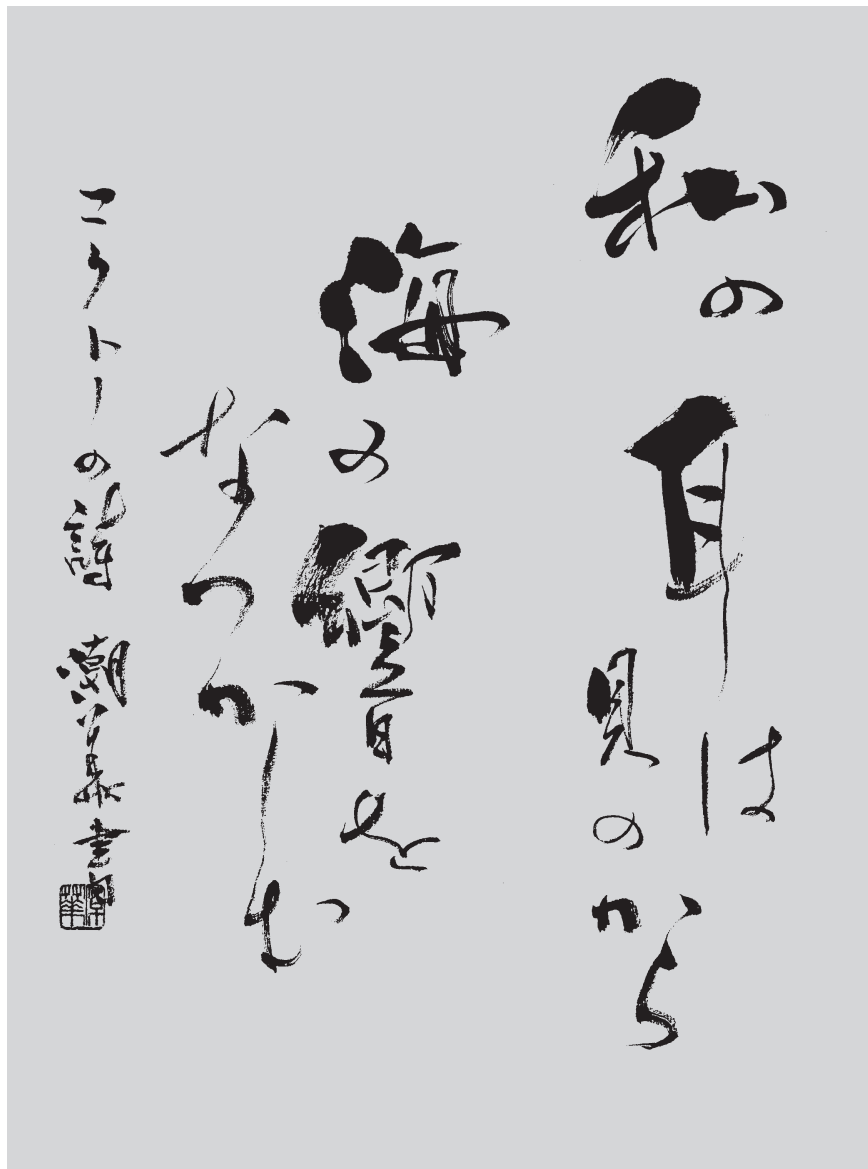 私の耳は
貝のから
海の響を
なつかしむ
コクトーの詩 潮華書